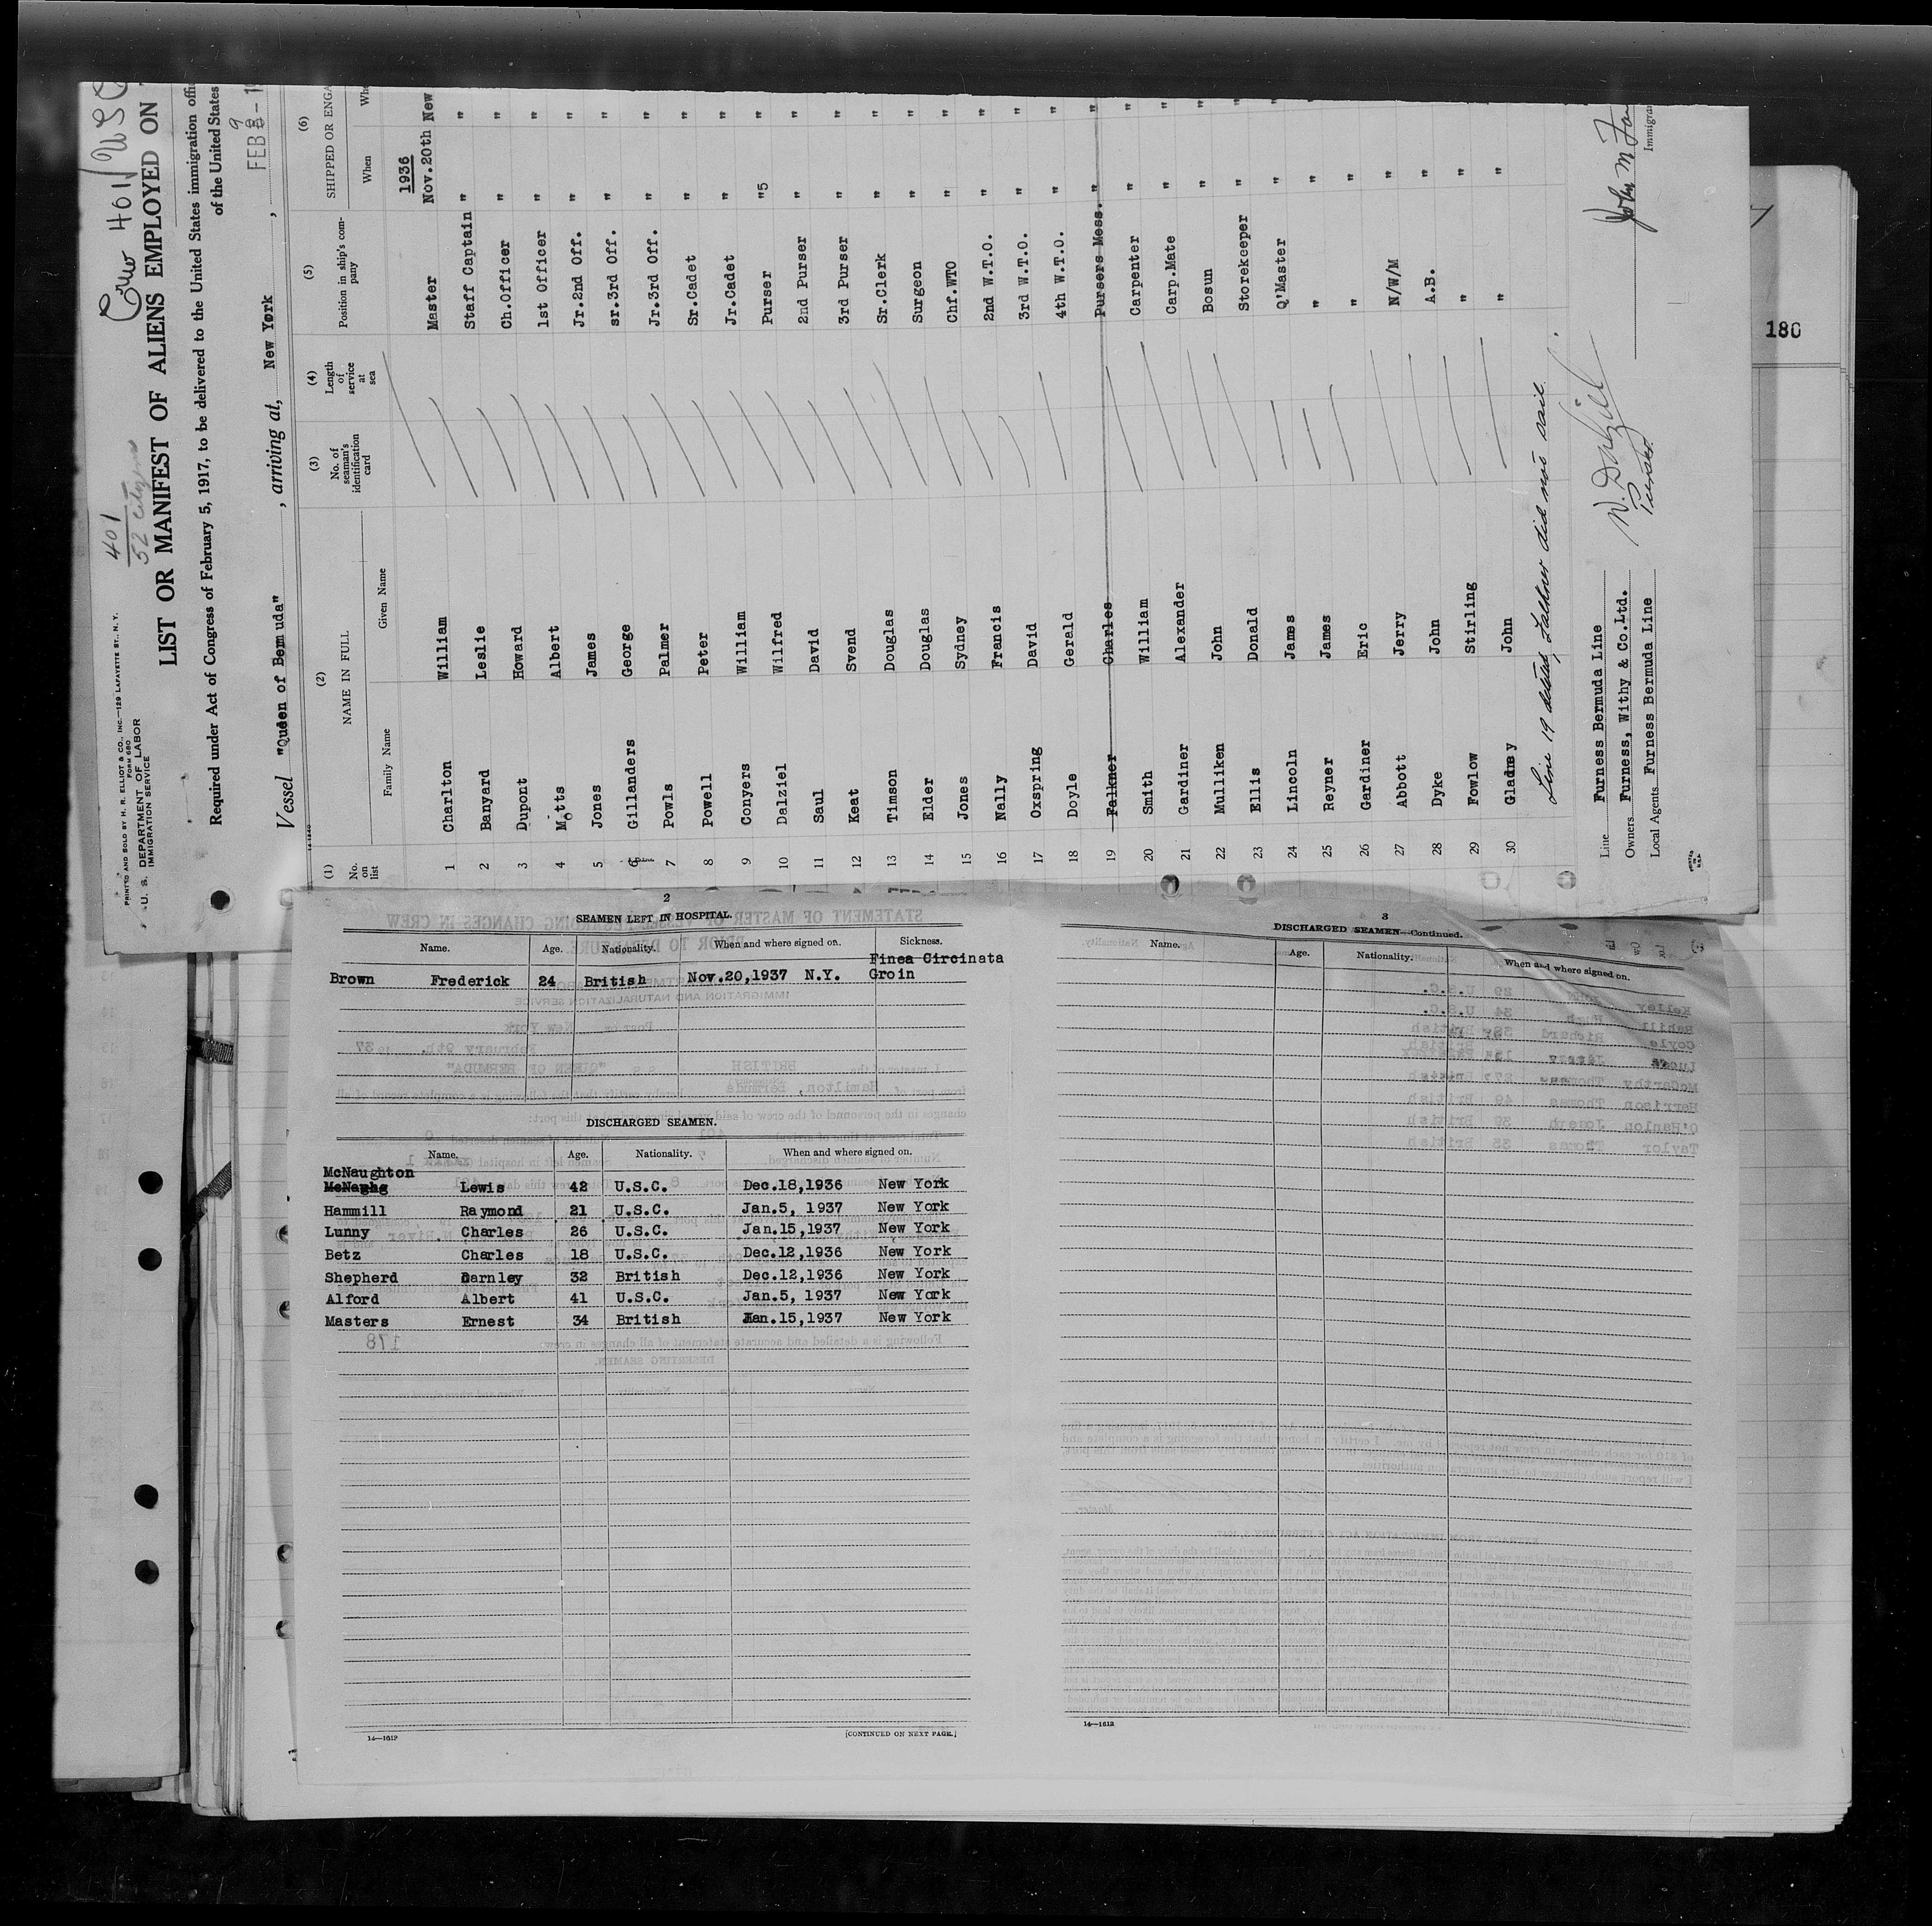 Crew 401/USC
401
52 citizens
PRINTED AND SOLD BY H. R. ELLIOT & CO., INC.—129 LAFAYETTE ST., N. Y.
FORM 680
U. S. DEPARTMENT OF LABOR
IMMIGRATION SERVICE
LIST OR MANIFEST OF ALIENS EMPLOYED ON
Required under Act of Congress of February 5, 1917, to be delivered to the United States immigration
of the United States
Vessel "Queen of Bermuda", arriving at, New York, FEB 9
(1) (2) (3) (4) (5) (6)
No. on list NAME IN FULL No. of seaman's identification card Length of service at sea Position in ship's company SHIPPED OR
Family Name Given Name When
1936
1 Charlton William Master Nov.20th New
2 Banyard Leslie Staff Captain " "
3 Dupont Howard Ch.Officer " "
4 Motts Albert 1st Officer " "
5 Jones James Jr.2nd Off. " "
6 Gillanders George sr.3rd Off. " "
7 Powls Palmer Jr.3rd Off. " "
8 Powell Peter Sr.Cadet " "
9 Conyers William Jr.Cadet " "
10 Dalziel Wilfred Purser "5 "
11 Saul David 2nd Purser " "
12 Keat Svend 3rd Purser " "
13 Timson Douglas Sr.Clerk " "
14 Elder Douglas Surgeon " "
15 Jones Sydney Chf.WTO " "
16 Nally Francis 2nd W.T.O. " "
17 Oxspring David 3rd W.T.O. " "
18 Doyle Gerald 4th W.T.O. " "
19 Falkner Charles Pursers Mess. " "
20 Smith William Carpenter " "
21 Gardiner Alexander Carp.Mate " "
22 Mulliken John Bosun " "
23 Ellis Donald Storekeeper " "
24 Lincoln James Q'Master " "
25 Reyner James " "
26 Gardiner Eric " "
27 Abbott Jerry N/W/M "
28 Dyke John A.B. "
29 Fowlow Stirling " "
30 Gladney John " "
Line 19 deleted, Falkner did not sail.
Line Furness Bermuda Line
Owners Furness, Withy & Co.Ltd.
Local Agents Furness Bermuda Line
W. Dalziel
Purser
John M
180
2
SEAMEN LEFT IN HOSPITAL.
Name. Age. Nationality. When and where signed on. Sickness.
Finea Circinata
Brown Frederick 24 British Nov.20,1937 N.Y. Groin
DISCHARGED SEAMEN.
Name. Age. Nationality. When and where signed on.
McNaughton
Lewis 42 U.S.C. Dec.18,1936 New York
Hammill Raymond 21 U.S.C. Jan.5, 1937 New York
Lunny Charles 26 U.S.C. Jan.15,1937 New York
Betz Charles 18 U.S.C. Dec.12,1936 New York
Shepherd Darnley 32 British Dec.12,1936 New York
Alford Albert 41 U.S.C. Jan.5, 1937 New York
Masters Ernest 34 British Jan.15,1937 New York
14—1612 [CONTINUED ON NEXT PAGE.]
3
DISCHARGED SEAMEN—Continued.
Name. Age. Nationality. When and where signed on.
14—1612